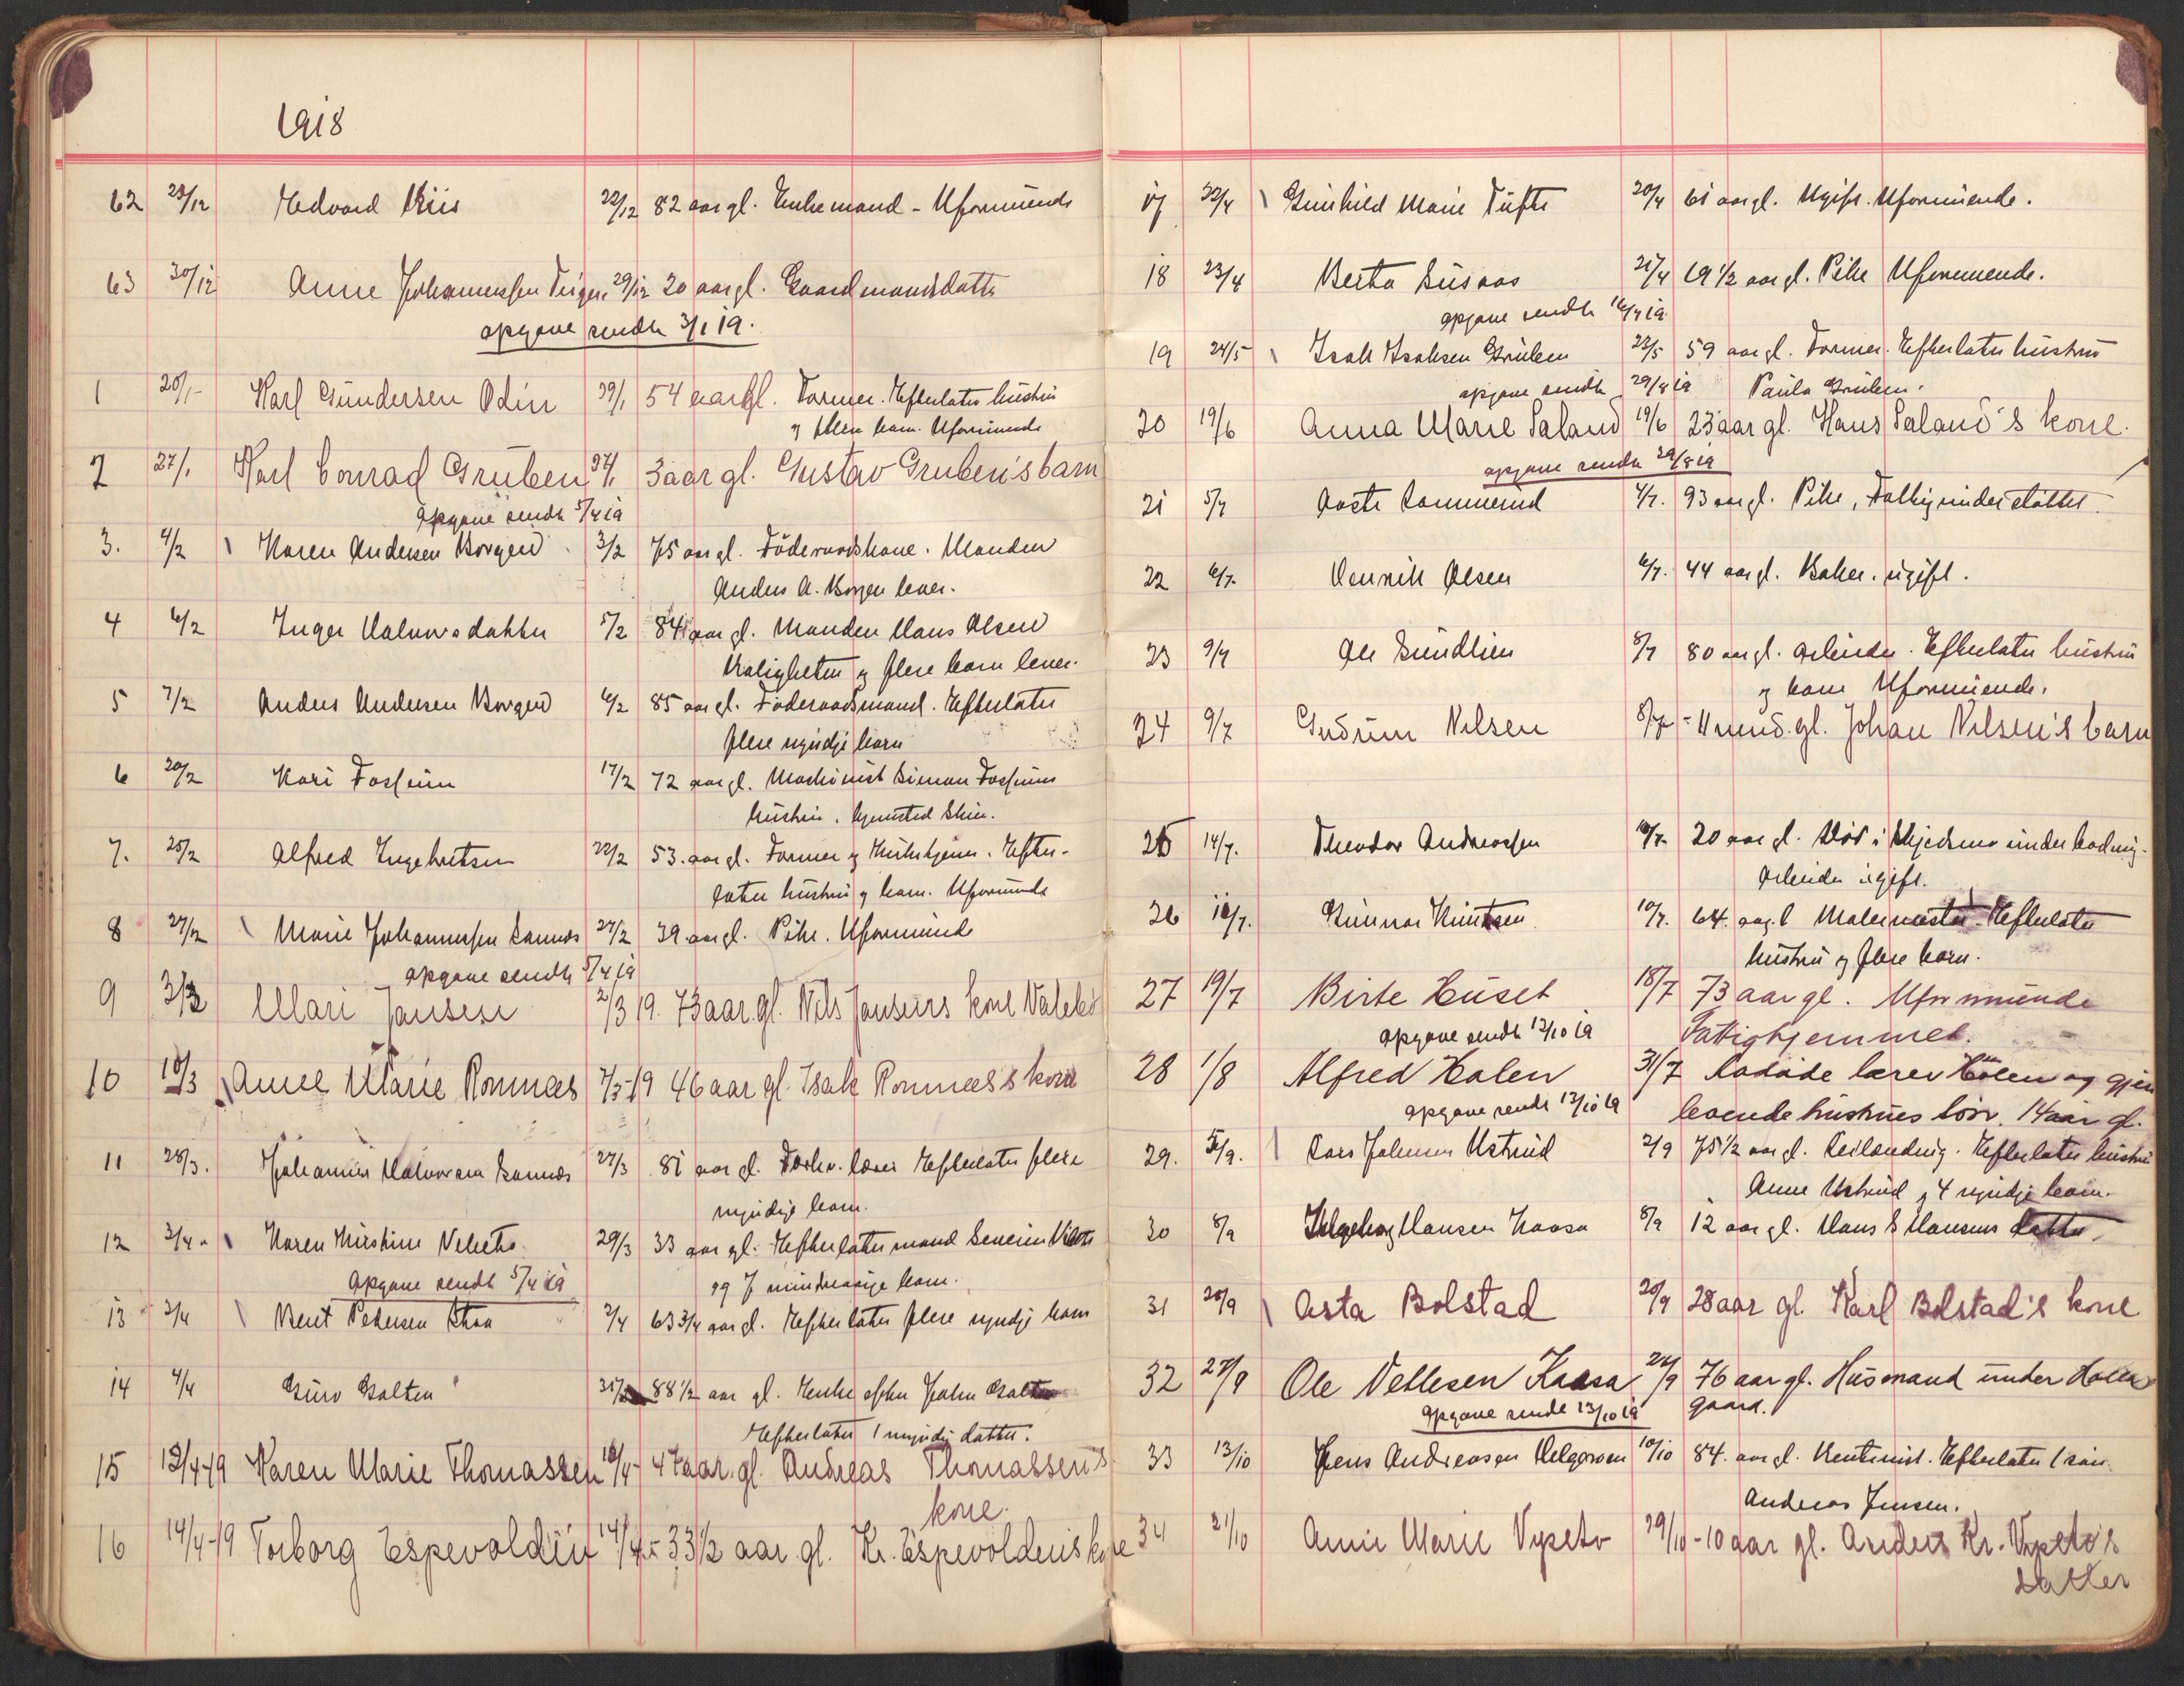 1918
62 23/12 Edvard Riis 22/12 82 aar gl. Enkemand - Uformuende
63 30/12 Anne Johannessen 29/12 20 aar gl. Gaardmandsdatter
opgave sendt 3/1 19.
1 20/1 Karl Gundersen Odin 54 aar gl. Former. Efterlater hustru
og flere barn. Uformuende
2 27/1 Karl Conrad Gruben 3 aar gl. Gustav Gruben's barn
opgave sendt 5/4 19
3. 4/2 Karen Andersen Borgen 3/2 75 aar gl. Föderaadskone. Manden
Anders A. Borgen lever.
4 6/2 Inger Halvorsdatter 5/2 84 aar gl. Manden Hans Olsen
og flere barn lever.
5 7/2 Anders Andersen Borgen 6/2 85 aar gl. Föderaadsmand. Efterlater
flere myndige barn
6 20/2 Kari Fossum 17/2 72 aar gl. Maskinist Simen Fossums
hustru. Skien.
7. 25/2 Alfred Ingebretsen 22/2 53. aar gl. Former og Efter-
later hustru og barn. Uformuende
8 27/2 Marie Johannessen 27/2 39 aar gl. Pike. Uformuende
opgave sendt 5/4 19
9 3/3 Mari Jansen 2/3 19. 73 aar gl. Nils Jansens kone
10 10/3 Anne Marie Romnes 7/3-19 46 aar gl. Isak Romnes's kone
11 28/3. Johannes Halvorsen 27/3 81 aar gl. Forhv. lærer Efterlater flere
myndige barn.
12 3/4. Karen Kirstine 29/3 33 aar gl. Efterlater mand Severin
og 7 mindreaarige barn.
Opgave sendt 5/4 19
13 3/4 Berit Pedersen 2/4 63 3/4 aar gl. Efterlater flere myndige barn
14 4/4 Guro Galten 88 1/2 aar gl. Enke efter John Galten
Efterlater 1 myndig datter.
15 12/4-19 Karen Marie Thomassen 10/4- 47 aar. gl. Andreas Thomassen's
kone.
16 14/4-19 Torborg Espevolden 33 1/2 aar gl. Kr. Espevoldens kone
17 22/4 Gunhild Marie Tufte 20/4 61 aar gl. Ugift. Uformuende.
18 23/4 Berta 21/4 19 1/2 aar gl. Pike Uformuende.
opgave sendt
19 24/5 Isak Isaksen Gruben 22/5 59 aar gl. Former. Efterlater hustru
opgave sendt 29/8 19 Paula Gruben.
20 19/6 Anna Marie Saland 19/6 23 aar gl. Hans Saland's kone.
opgave sendt 29/8 19
21 5/7 Aaste 4/7. 93 aar gl. Pike, Fattigunderstöttet.
22 6/7. Henrik Olsen 6/7. 44 aar gl. Baker. ugift.
23 9/7 Ole 8/7 80 aar gl. Arbeider. Efterlater hustru
og barn Uformuende.
24 9/7 Gudrun Nilsen 8/7 gl. Johan Nilsen's barn
25 14/7. Theodor Andreassen 20 aar gl. Död i under badning.
Arbeider ugift.
26 Gunnar Knutsen 10/7. 64. aar gl Malermester. Efterlater
hustru og flere barn.
27 19/7 Birte Huset 18/7 73 aar gl. Uformuende
opgave sendt 13/10 19 Fattighjemmet.
28 1/8 Alfred Holen 31/7 lærer Holen og gjen
opgave sendt 13/10 19 levende hustrues sön. 14 aar gl.
29. Lars Johnsen Ustrud 2/9 75 1/2 aar gl. Efterlater hustru
Anne Ustrud og 4 myndige barn.
30 8/9 Hansen Kaasa 8/9 12 aar gl. Hans S Hansens datter.
31 20/9 Asta Bolstad 20/9 28 aar gl. Karl Bolstad's kone
32 27/9 Ole Vetlesen Kaasa 24/9 76 aar gl. Husmand under Holla
opgave sendt 13/10 19 gaard.
33 13/10 Jens Andreasen Helgeroen 10/10 84. aar gl. Rentenist. Efterlater 1 sön.
Andreas Jensen.
34 21/10 Annie Marie Vypeto 19/10 - 10 aar gl. Anders Kr. Vypeto's
datter